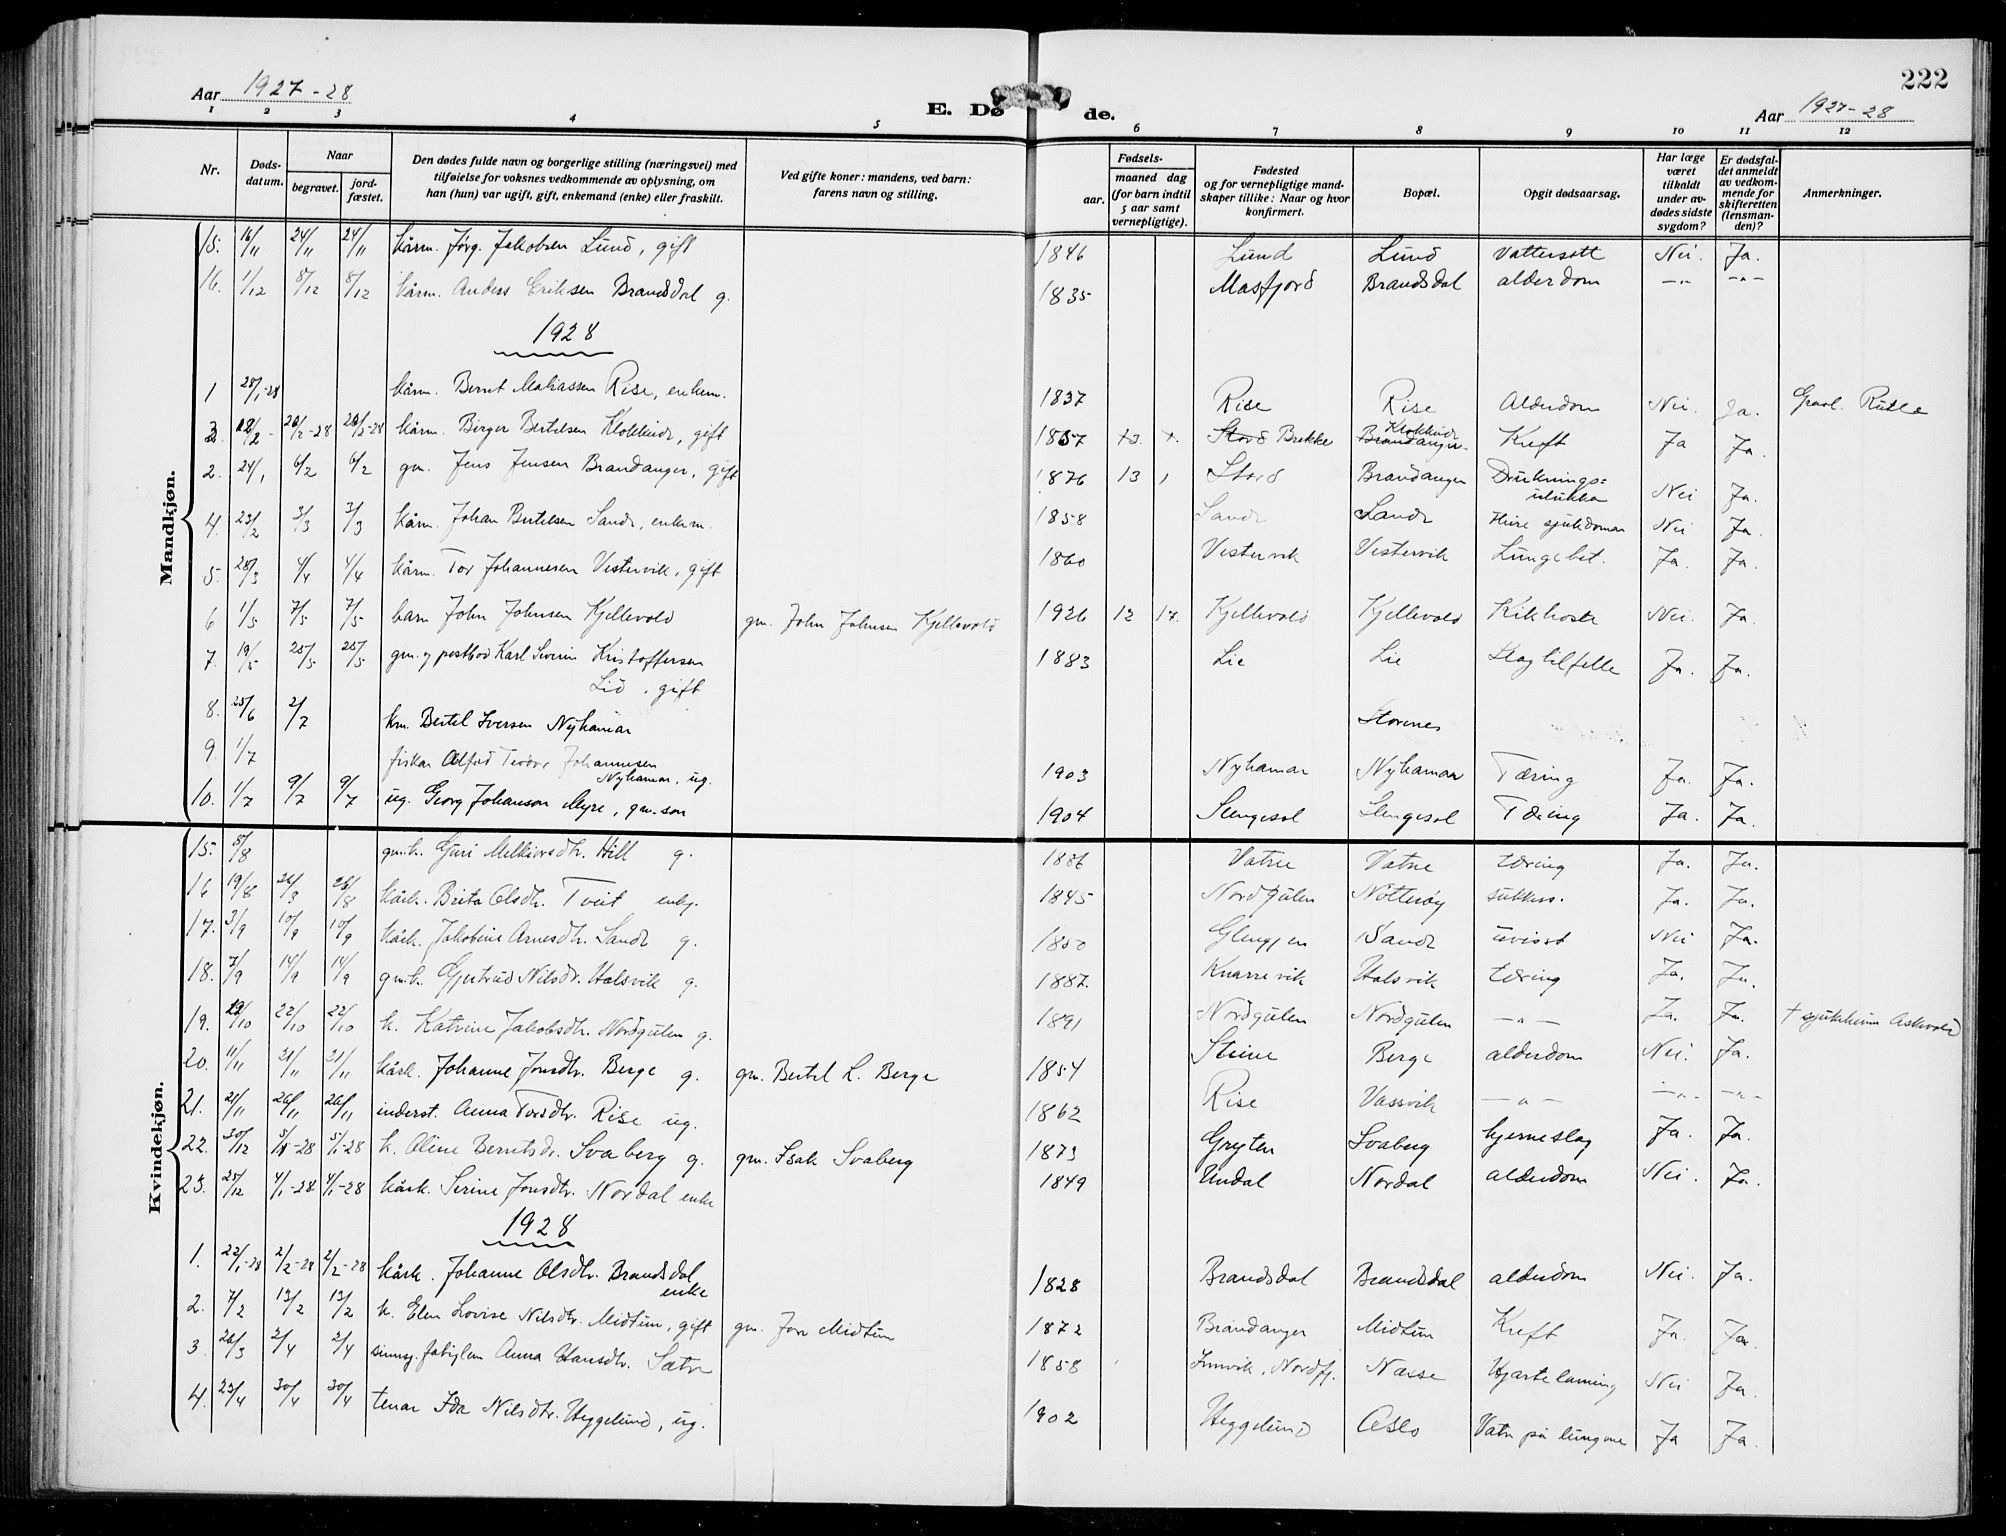 222
Aar 1927-28
E. Døde.
Aar 1927-28
1 2 3 4 5 6 7 8 9 10 11 12
Nr.
Døds-datum.
Naar
begravet.
jord-fæstet.
Den dødes fulde navn og borgerlige stilling (næringsvei) med
tilføielse for voksnes vedkommende av oplysning, om
han (hun) var ugift, gift, enkemand (enke) eller fraskilt.
Ved gifte koner: mandens, ved barn:
farens navn og stilling.
Fødsels-
aar.
maaned dag
(for barn indtil
5 aar samt
vernepligtige).
Fødested
og for vernepligtige mand-
skaper tillike: Naar og hvor
konfirmert.
Bopæl.
Opgit dødsaarsag.
Har læge
været
tilkaldt
under av-
dødes sidste
sygdom?
Er dødsfal-
det anmeldt
av vedkom-
mende for
skifteretten
(lensman-
den)?
Anmerkninger.
Mandkjøn.
15. 16/11 24/11 24/11 kårm. Jørg. Jakobsen Lund, gift 1846 Lund Lund Vattersott Nei. Ja.
16. 1/12 8/12 8/12 kårm. Anders Eriksen Brandsdal g. 1835 Masfjord Brandsdal alderdom -"- -"-
1928
1 28/1-28 kårm. Bernt Rise, enkem. 1837 Rise Rise Alderdom Nei. Ja. Gravl. Rutle
3. 12/2- 20/2-28 20/2-28 kårm. Birger Bertelsen Klokkeide, gift 1857 Stord Brekke Brandanger Klokkeide Kreft Ja Ja.
2. 24/1 6/2 6/2 gm. Jens Jensen Brandanger, gift 1876 13 1 Stord Brandanger Druknings=ulukka Nei Ja.
4. 23/2 3/3 3/3 kårm. Johan Bertelsen Sande, enkem. 1858 Sande Sande sjukdomar Nei Ja.
5. 28/3 4/4 4/4 kårm. Tor Johannesen Vestervik, gift 1860 Vestervik Vestervik Lungebet. Ja. Ja.
6 1/5 7/5 7/5 barn John Johnsen Kjellevold gm. John Johnsen Kjellevold 1926 12 17. Kjellevold Kjellevold Kikhoste Nei. Ja.
7. 19/5 25/5 25/5 gm. og postbod Karl Severin Kristoffersen
Lid, gift 1883 Lie Lie Slagtilfelle Ja. Ja.
8. 25/6 2/7 km. Bertel Iversen Nyhamar Storenes
9. 1/7 fiskar Alfred Teodor Johannesen
Nyhamar, ug. 1903 Nyhamar Nyhamar Tæring Ja. Ja.
10. 1/7 9/7 9/7 ug. Georg Johanson Myre, gm. son 1904 Slengesol Slengesol Tæring Ja. Ja.
Kvindekjøn.
15. 8/8 gm.k. Guri Melkiorsdtr. Hill g. 1886 Vatne Vatne tæring Ja. Ja.
16 19/8 26/8 kårk. Brita Olsdtr. Tveit enkj. 1845 Nordgulen Notterøy Ja. Ja.
17. 3/9 10/9 10/9 kårk. Jakobine Arnesdtr. Sande g. 1850 Glengjen Sande uvisst Nei Ja.
18. 7/9 14/9 14/9 gm.k. Gjertrud Nilsdr. Halsvik g. 1887. Knarrevik Halsvik tæring Ja. Ja.
19. 22/10 22/10 k. Katrine Jakobsdtr. Nordgulen g. 1891 Nordgulen Nordgulen -"- Ja. Ja. † sjukheim Askvold
20. 11/11 21/11 21/11 kårk. Johanne Jonsdtr. Berge g. gm. Bertel L. Berge 1854 Steine Berge alderdom Nei. Ja.
21. 21/11 26/11 26/11 inderst. Anna Torsdtr. Rise ug. 1862 Rise Vassvik -"- -"- -"-
22. 30/12 5/1-28 5/1-28 k. Oline Berntsdr. Svaberg g. gm. Isak Svaberg 1873 Gryten Svaberg hjerneslag Ja. Ja.
23. 25/12 4/1-28 4/1-28 kårk. Serine Jonsdtr. Nordal enke 1849 Undal Nordal alderdom Nei. Ja.
1928
1. 22/1-28 2/2-28 2/2-28 kårk. Johanne Olsdtr. Brandsdal
enke 1828 Brandsdal Brandsdal alderdom Nei. Ja.
2. 7/2 13/2 13/2 k. Elen Lovise Nilsdtr. Midtun, gift gm. Jon Midtun 1872 Brandanger Midtun Kreft Ja. Ja.
3. 26/3 2/4 2/4 Anna Hansdtr. Sætre 1858 Innvik, Nordfj. Nasse Hjartelaming Nei Ja.
4. 23/4 30/4 30/4 tenar Ida Nilsdtr. Hyggelund, ug. 1902 Hyggelund Oslo Vatn på lungone Ja Ja.